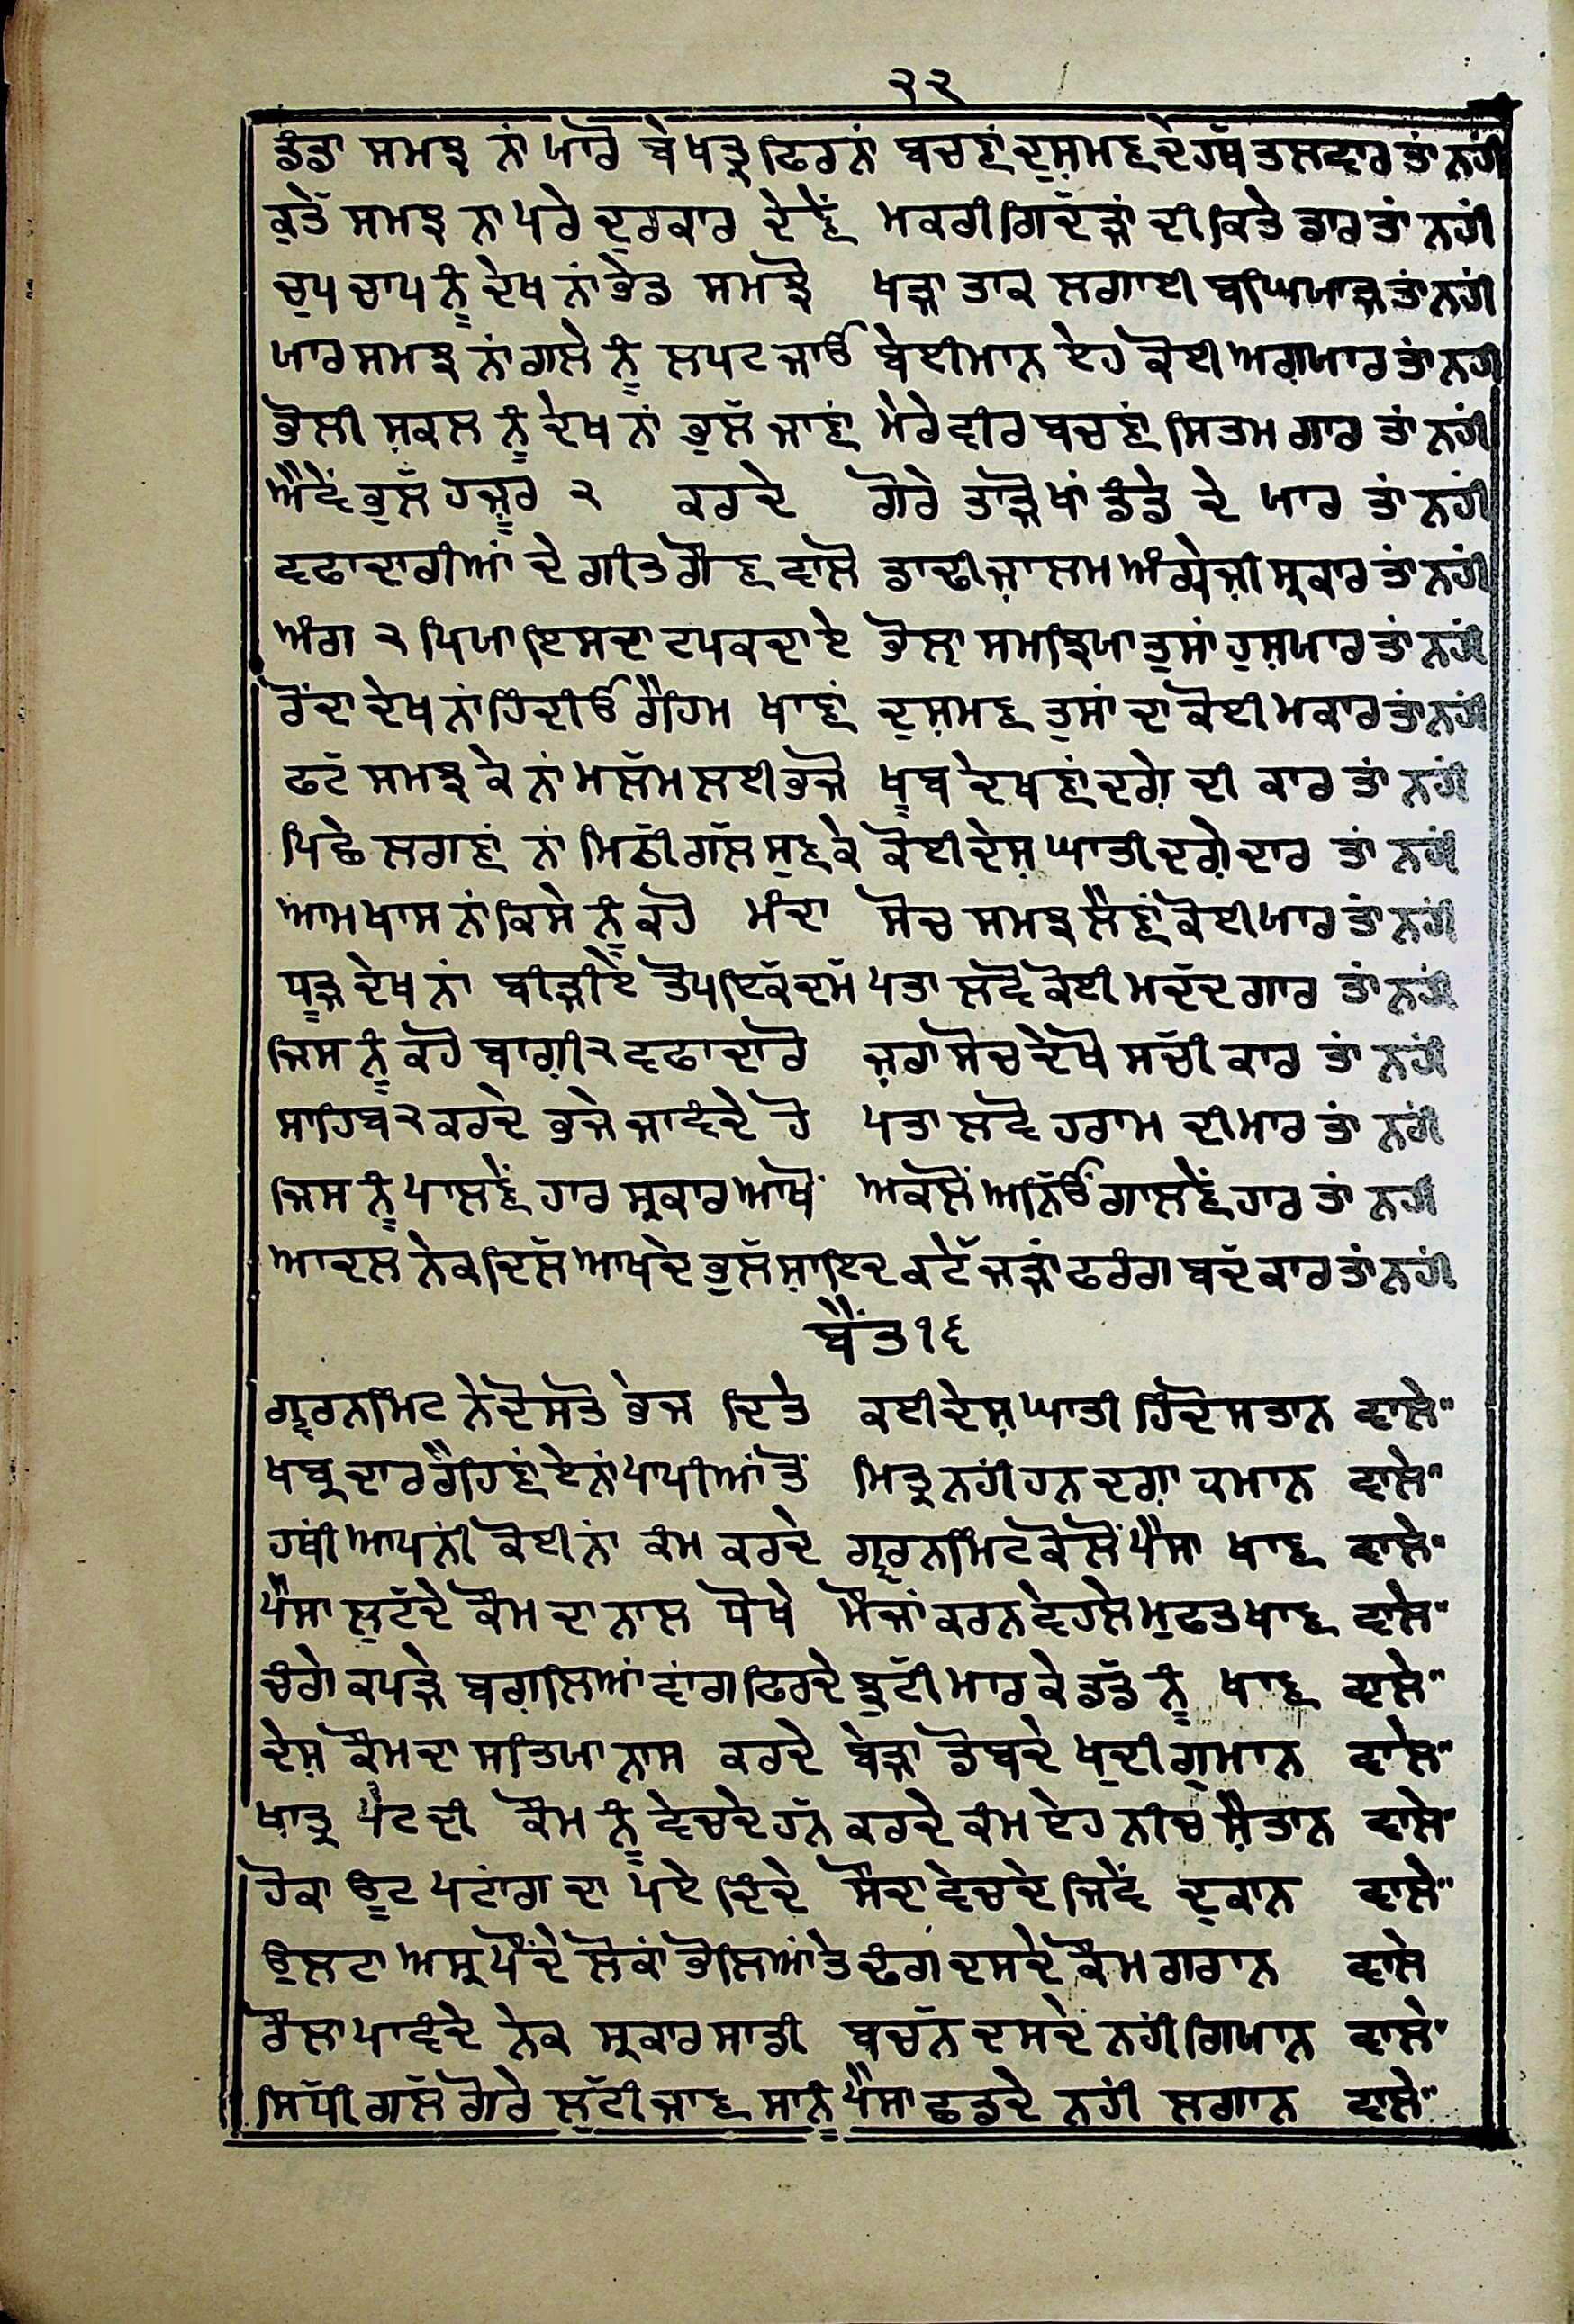 ੨੨
ਡੰਡਾ ਸਮਝ ਨਾਂ ਯਾਰੋ ਬੇਖਤ੍ਰ ਫਿਰਨਾਂ ਬਚਣਾਂ ਦੁਸ਼ਮਣ ਦੇ ਹੱਥ ਤਲਵਾਰ ਤਾਂ ਨਹੀਂ
ਕੁਤੇੱ ਸਮਝ ਨਾ ਪਰੇ ਦੁਰਕਾਰ ਦੇਣੇਂ ਮਕਰੀ ਗਿਦੱੜਾਂ ਦੀ ਕਿਤੇ ਡਾਰ ਤਾਂ ਨਹੀਂ
ਚੁਪ ਚਾਪ ਨੂੰ ਦੇਖ ਨਾਂ ਭੇਡ ਸਮਝੋ ਖੜਾ ਤਾਕ ਲਗਾਈ ਬਘਿਯਾੜ ਤਾਂ ਨਹੀਂ
ਯਾਰ ਸਮਝ ਨਾਂ ਗਲੇ ਨੂੰ ਲਪਟ ਜਾਓ ਬੇਈਮਾਨ ਏਹ ਕੋਈ ਅਗ਼ਯਾਰ ਤਾਂ ਨਹੀਂ
ਭੋਲੀ ਸ਼ਕਲ ਨੂੰ ਦੇਖ ਨਾਂ ਭੁਲੱ ਜਾਣਾਂ ਮੇਰੇ ਵੀਰ ਬਚਣਾਂ ਸਿਤਮ ਗਾਰ ਤਾਂ ਨਹੀਂ
ਐਵੇਂ ਭੁਲੱ ਹਜ਼ੂਰ ੨ ਕਰਦੇ ਗੋਰੇ ਤਾੜੋ ਖਾਂ ਡੰਡੇ ਦੇ ਯਾਰ ਤਾਂ ਨਹੀਂ
ਵਫਾਦਾਰੀਆਂ ਦੇ ਗੀਤ ਗੌਣ ਵਾਲੋ ਡਾਢੀ ਜ਼ਾਲਮ ਅੰਗ੍ਰੇਜ਼ੀ ਸ੍ਰਕਾਰ ਤਾਂ ਨਹੀਂ
ਅੰਗ ੨ ਪਿਯਾ ਇਸਦਾ ਟਪਕਦਾ ਏ ਭੋਲਾ ਸਮਝਿਯਾ ਤੁਸਾਂ ਹੁਸ਼ਯਾਰ ਤਾਂ ਨਹੀਂ
ਰੋਂਦਾ ਦੇਖ ਨਾਂ ਹਿੰਦੀਓ ਰੈਹਿਮ ਖਾਣਾਂ ਦੁਸ਼ਮਣ ਤੁਸਾਂ ਦਾ ਕੋਈ ਮਕਾਰ ਤਾਂ ਨਹੀਂ
ਫਟੱ ਸਮਝ ਕੇ ਨਾਂ ਮਲੱਮ ਲਈ ਭਜੋ ਖੂਬ ਦੇਖਣਾਂ ਦਗ਼ੇ ਦੀ ਕਾਰ ਤਾਂ ਨਹੀਂ
ਪਿਛੇ ਲਗਣਾਂ ਨਾਂ ਮਿਠੀੱ ਗਲੱ ਸੁਣਕੇ ਕੋਈ ਦੇਸ਼ ਘਾਤੀ ਦਗ਼ੇਦਾਰ ਤਾਂ ਨਹੀਂ
ਆਮ ਖਾਸ ਨਾਂ ਕਿਸੇ ਨੂੰ ਕਹੋ ਮੰਦਾ ਸੋਚ ਸਮਝ ਲੈਣਾਂ ਕੋਈ ਯਾਰ ਤਾਂ ਨਹੀਂ
ਧੂੜ ਦੇਖ ਨਾਂ ਬੀੜੀਏ ਤੋਪ ਇਕੱ ਦਮੱ ਪਤਾ ਲਵੋ ਕੋਈ ਮਦੱਦਗਾਰ ਤਾਂ ਨਹੀਂ
ਜਿਸ ਨੂੰ ਕਹੋ ਬਾਗ਼ੀ ੨ ਵਫਾਦਾਰੋ ਜ਼ਰਾ ਸੋਚ ਦੇਖੋ ਸਚੀੱ ਕਾਰ ਤਾਂ ਨਹੀਂ
ਸਾਹਿਬ ੨ ਕਰਦੇ ਭਜੇ ਜਾਵੰਦੇ ਹੋ ਪਤਾ ਲਵੋ ਹਰਾਮ ਦੀ ਮਾਰ ਤਾਂ ਨਹੀਂ
ਜਿਸ ਨੂੰ ਪਾਲਣੇਂ ਹਾਰ ਸ੍ਰਕਾਰ ਆਖੋ ਅਕਲੋਂ ਅਨਿੱਓਂ ਗਾਲਣੇਂ ਹਾਰ ਤਾਂ ਨਹੀਂ
ਆਦਲ ਨੇਕ ਦਿਲੱ ਆਖਦੇ ਭੁਲੱ ਸ਼ਾਇਦ ਕਟੇੱ ਜੜਾਂ ਫਰੰਗ ਬਦੱਕਾਰ ਤਾਂ ਨਹੀਂ
ਬੈਂਤ ੧੬
ਗ੍ਵਰਨਮਿੰਟ ਨੇ ਦੋਸਤੋ ਭੇਜ ਦਿਤੇ ਕਈ ਦੇਸ਼ ਘਾਤੀ ਹਿੰਦੋਸਤਾਨ ਵਾਲੇ"
ਖਬ੍ਰਦਾਰ ਰੈਹਿਣਾਂ ਏਨਾਂ ਪਾਪੀਆਂ ਤੋਂ ਮਿਤ੍ਰ ਨਹੀਂ ਹਨ ਦਗ਼ਾ ਕਮਾਨ ਵਾਲੇ"
ਹਥੀਂ ਆਪਨੀਂ ਕੋਈ ਨਾਂ ਕੰਮ ਕਰਦੇ ਗ੍ਵਰਨਮਿੰਟ ਕੋਲੋਂ ਪੈਸਾ ਖਾਣ ਵਾਲੇ"
ਪੈਸਾ ਲੁਟੱਦੇ ਕੌਮ ਦਾ ਨਾਲ ਧੋਖੇ ਮੌਜਾਂ ਕਰਨ ਵੇਹਲੇ ਮੁਫਤ ਖਾਣ ਵਾਲੇ"
ਚੰਗੇ ਕਪੜੇ ਬਗ਼ਲਿਆਂ ਵਾਂਗ ਫਿਰਦੇ ਝੁਟੀੱ ਮਾਰ ਕੇ ਡਡੱ ਨੂੰ ਖਾਣ ਵਾਲੇ"
ਦੇਸ਼ ਕੌਮ ਦਾ ਸਤਿਯਾ ਨਾਸ ਕਰਦੇ ਬੇੜਾ ਡੋਬਦੇ ਖੁਦੀ ਗੁਮਾਨ ਵਾਲੇ"
ਖਾਤ੍ਰ ਪੇਟ ਦੀ ਕੌਮ ਨੂੰ ਵੇਚਦੇ ਹਨੱ ਕਰਦੇ ਕੰਮ ਏਹ ਨੀਚ ਸ਼ੈਤਾਨ ਵਾਲੇ"
ਹੋਕਾ ਊਟ ਪਟਾਂਗ ਦਾ ਪਏ ਦਿੰਦੇ ਸੌਦਾ ਵੇਚਦੇ ਜਿਵੇਂ ਦੁਕਾਨ ਵਾਲੇ"
ਉਲਟਾ ਅਸ੍ਰ ਪੌਂਦੇ ਲੋਕਾਂ ਭੋਲਿਆਂ ਤੇ ਢੰਗ ਦਸਦੇ ਕੌਮ ਗਰਾਨ ਵਾਲੇ
ਰੌਲਾ ਪਾਵੰਦੇ ਨੇਕ ਸ੍ਰਕਾਰ ਸਾਡੀ ਬਚੱਨ ਦਸਦੇ ਨਹੀਂ ਗਿਯਾਨ ਵਾਲੇ"
ਸਿਧੀੱ ਗਲੱ ਗੋਰੇ ਲੁਟੀੱ ਜਾਣ ਸਾਨੂੰ ਪੈਸਾ ਛਡਦੇ ਨਹੀਂ ਲਗਾਨ ਵਾਲੇ"